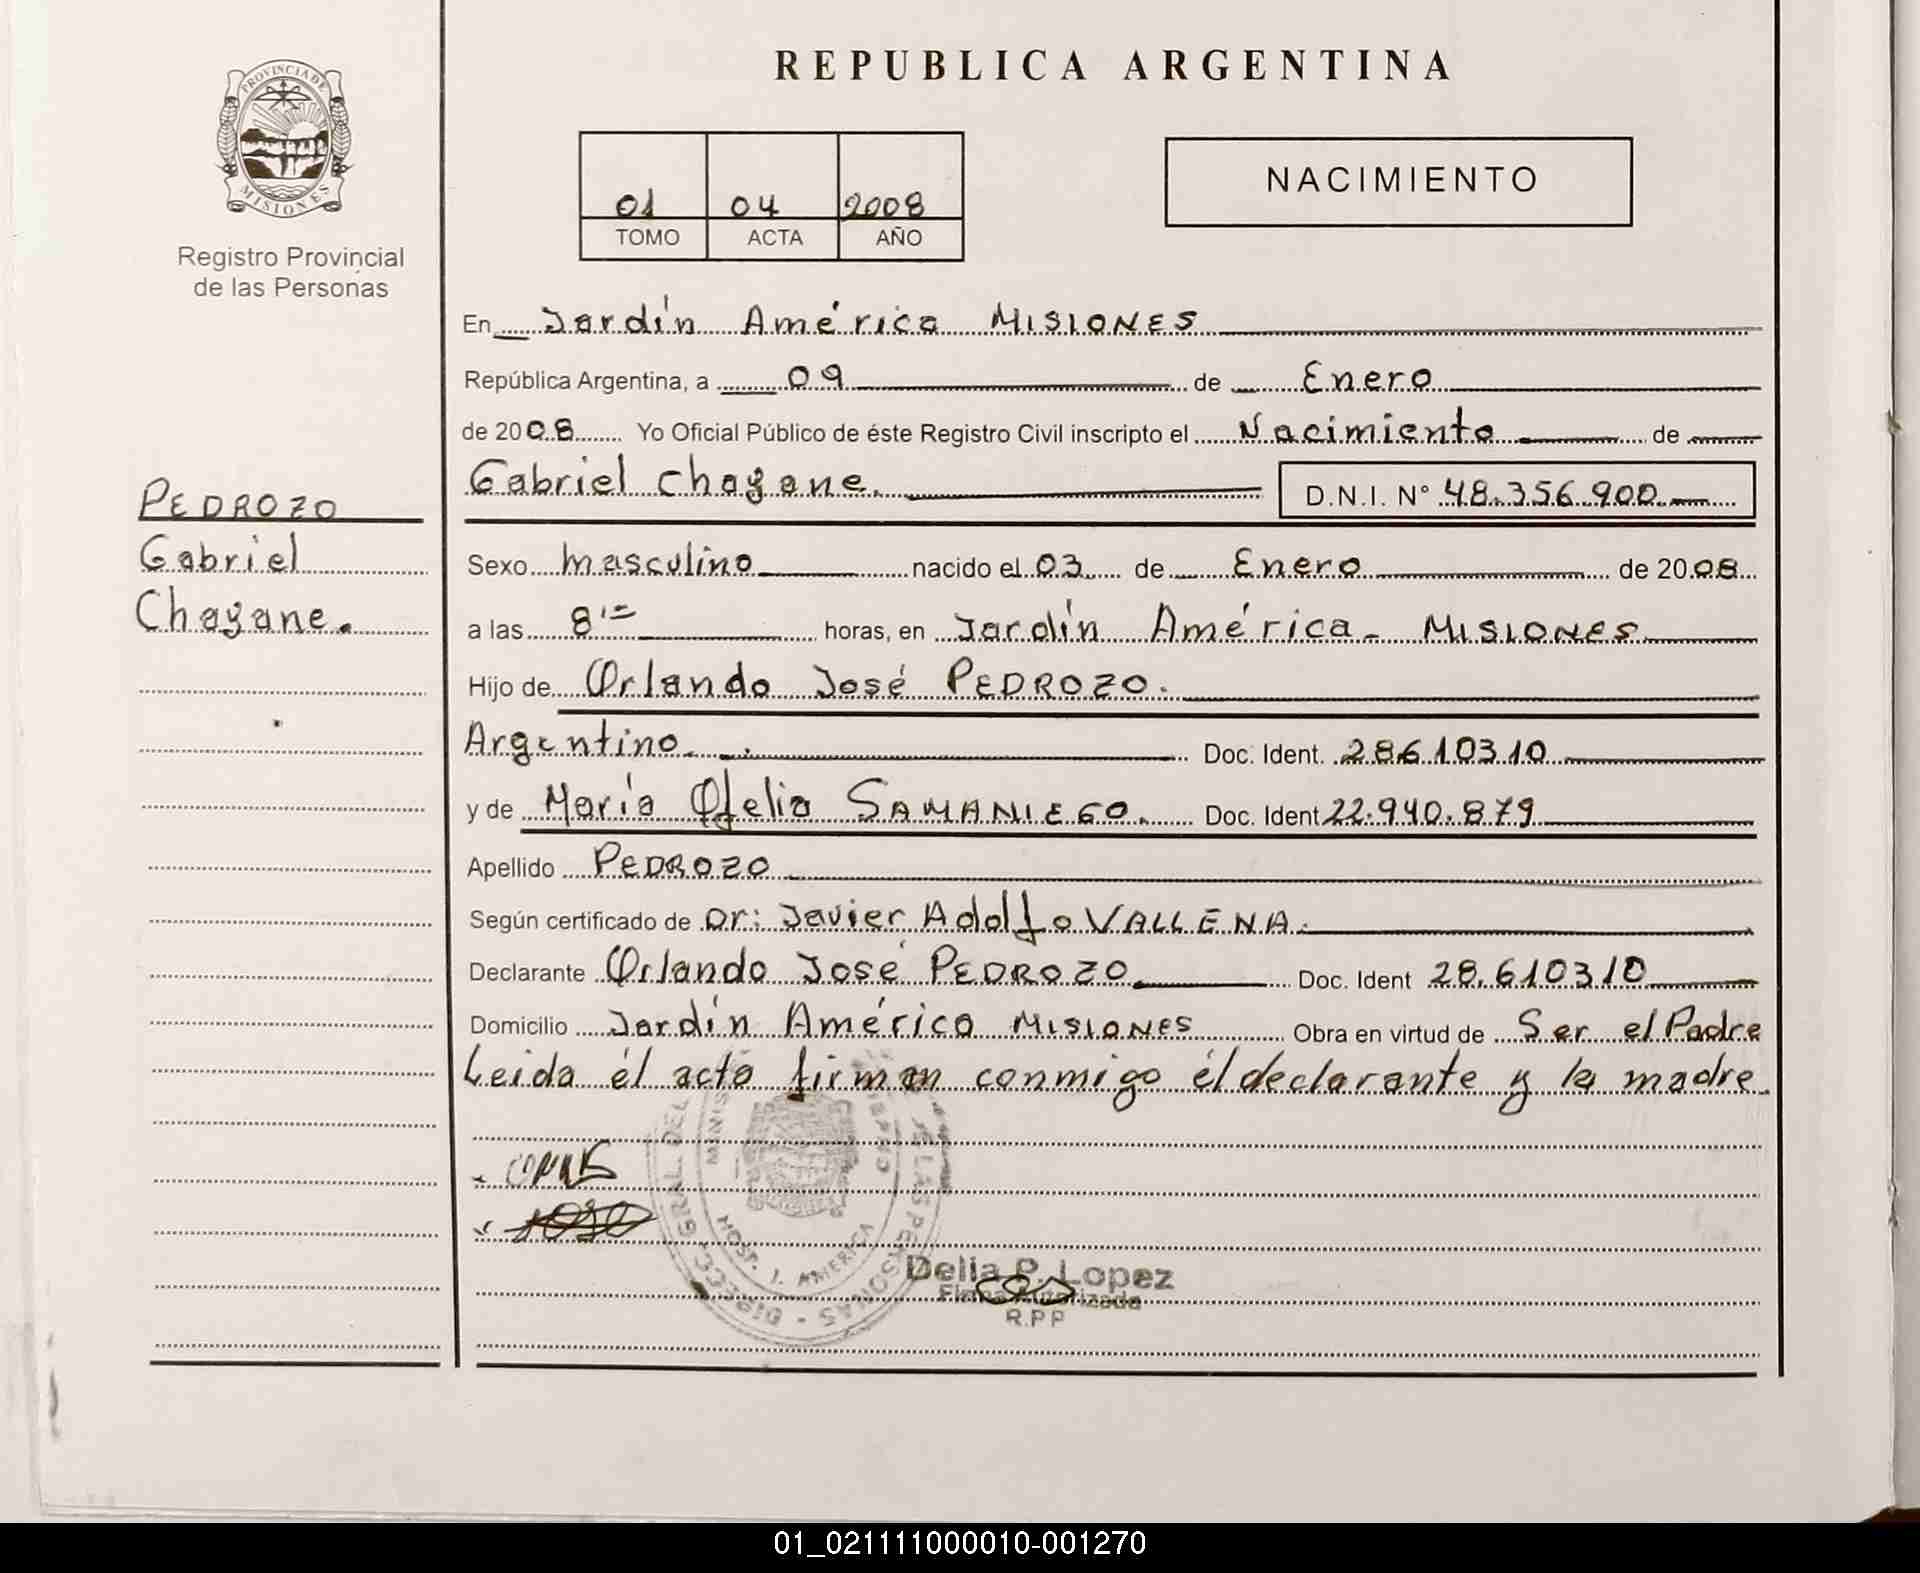 REPUBLICA ARGENTINA
PROVINCIA DE
MISIONES
Registro Provincial
de las Personas
01 04 2008
TOMO ACTA AÑO
NACIMIENTO
En Jardín América MISIONES
República Argentina, a 09 de Enero
de 2008 Yo Oficial Público de éste Registro Civil inscripto el Nacimiento de
Gabriel Chayane. D.N.I. N° 48.356.900
PEDROZO
Gabriel
Chayane.
Sexo masculino nacido el 03 de Enero de 2008
a las 8 horas, en Jardín América - MISIONES
Hijo de Orlando José PEDROZO.
Argentino. Doc. Ident. 28610310
y de María Ofelia SAMANIEGO. Doc. Ident 22.940.879
Apellido PEDROZO
Según certificado de Dr: Javier Adolfo VALLENA.
Declarante Orlando José PEDROZO Doc. Ident 28.610310
Domicilio Jardín América MISIONES Obra en virtud de Ser el Padre
Leida él acta firman conmigo él declarante y la madre.
DIRECC. GRAL. DEL DE LAS PERSONAS
HOSP. J. AMERICA
Delia P. Lopez
Firma Autorizada
R.P.P
01_021111000010-001270